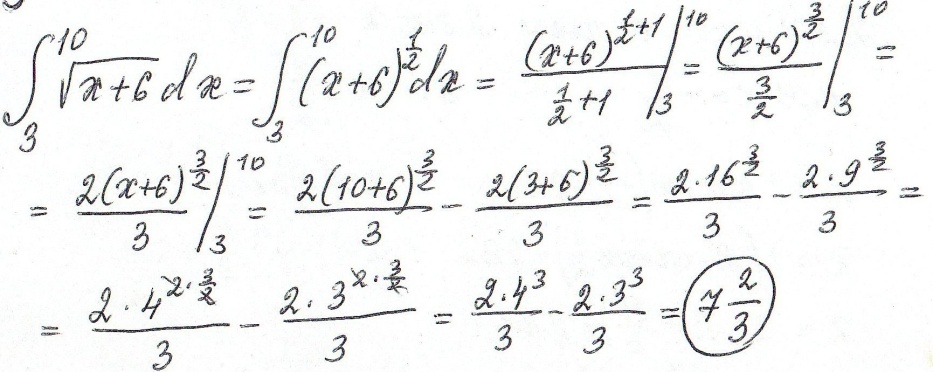 ∫₃¹⁰ √(x+6) dx = ∫₃¹⁰ (x+6)^(1/2) dx = (x+6)^(1/2+1) / (1/2+1) |₃¹⁰ = (x+6)^(3/2) / (3/2) |₃¹⁰ =
= 2(x+6)^(3/2) / 3 |₃¹⁰ = 2(10+6)^(3/2) / 3 - 2(3+6)^(3/2) / 3 = 2·16^(3/2) / 3 - 2·9^(3/2) / 3 =
= 2·4^(2·3/2) / 3 - 2·3^(2·3/2) / 3 = 2·4³ / 3 - 2·3³ / 3 = 7 2/3